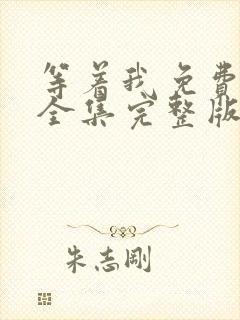 等着我免費
全集完整版
朱志剛